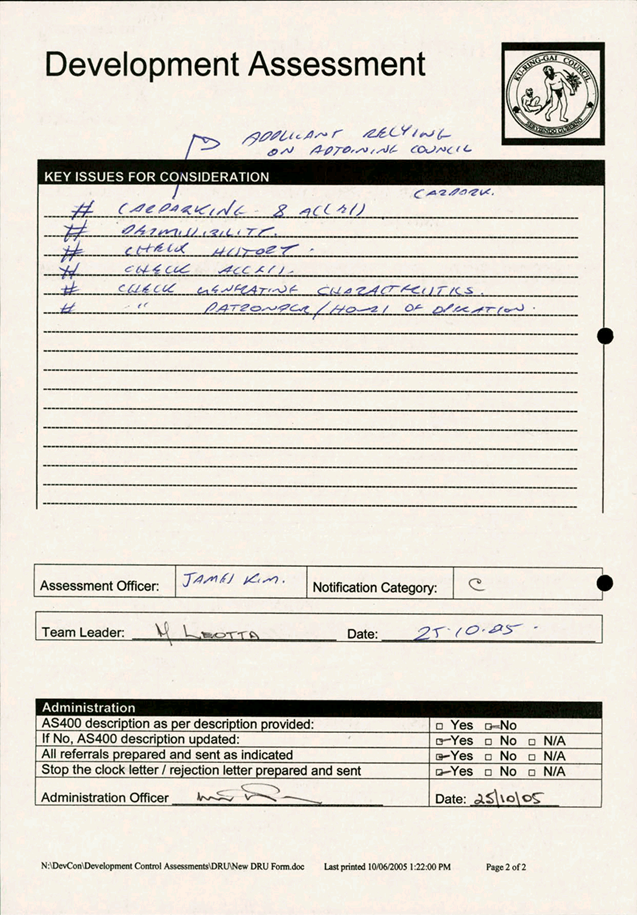 Development Assessment
KU-RING-GAI COUNCIL
SERVIENDO GUBERNO
APPLICANT RELYING
ON ADJOINING COUNCIL
CARPARK.
KEY ISSUES FOR CONSIDERATION
# CARPARKING - & ACCESS
# PERMISSIBILITY.
# CHECK HISTORY.
# CHECK ACCESS.
# CHECK GENERATING CHARACTERISTICS.
# " PATRONAGE/HOURS OF OPERATION.
Assessment Officer: JAMES KIM. Notification Category: C
Team Leader: M LEOTTA Date: 25.10.05.
Administration
AS400 description as per description provided: Yes No
If No, AS400 description updated: Yes No N/A
All referrals prepared and sent as indicated Yes No N/A
Stop the clock letter / rejection letter prepared and sent Yes No N/A
Administration Officer Date: 25/10/05
N:\DevCon\Development Control Assessments\DRU\New DRU Form.doc Last printed 10/06/2005 1:22:00 PM Page 2 of 2